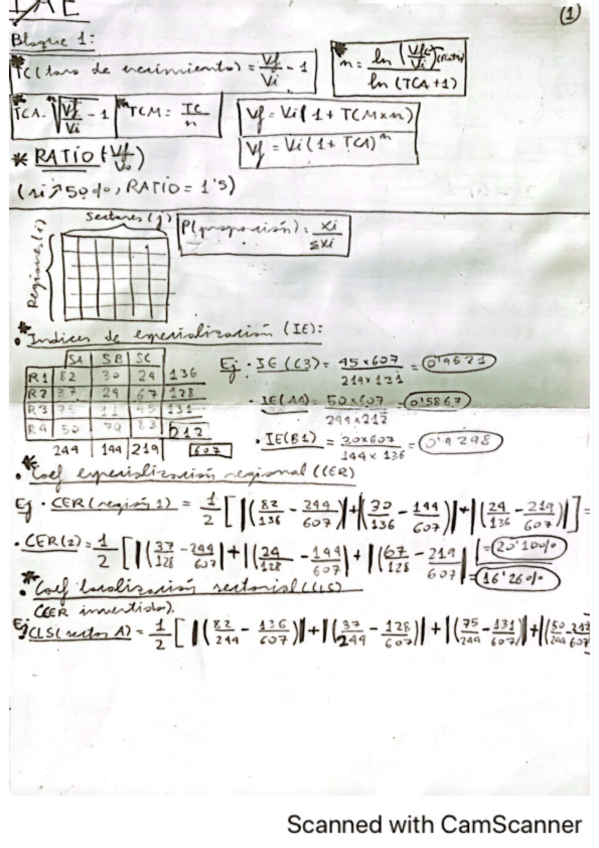 IAE (1)
Bloque 1:
* TC (tasa de crecimiento) = Vf/Vi - 1
* n = ln (Vf/Vi) / ln (TCA+1)
TCA = ⁿ√(Vf/Vi) - 1
* TCM = TC/n
Vf = Vi (1 + TCM×n)
Vf = Vi (1 + TCA)ⁿ
* RATIO (Vf/Vo)
(si ↗ 50%, RATIO = 1'5)
Sectores (j)
P(proporción) = xi/Σxi
Regiones (i)
* Indices de especialización (IE):
SA SB SC
R1 82 30 24 136
R2 37 24 67 128
R3 75 11 45 131
R4 50 79 83 212
244 144 219 607
Ej · IE (C3) = 45×607 / 219×131 = 0'9521
· IE (A4) = 50×607 / 244×212 = 0'5867
· IE (B1) = 30×607 / 144×136 = 0'9298
* Coef especialización regional (CER)
Ej · CER (región 1) = 1/2 [ |(82/136 - 244/607)| + |(30/136 - 144/607)| + |(24/136 - 219/607)| ] =
= 20'10%
· CER (2) = 1/2 [ |(37/128 - 244/607)| + |(24/128 - 144/607)| + |(67/128 - 219/607)|
= 16'26%
* Coef localización sectorial (CLS)
(CER invertido).
Ej CLS (sector A) = 1/2 [ |(82/244 - 136/607)| + |(37/244 - 128/607)| + |(75/244 - 131/607)| + |(50/244 - 212/607)
Scanned with CamScanner